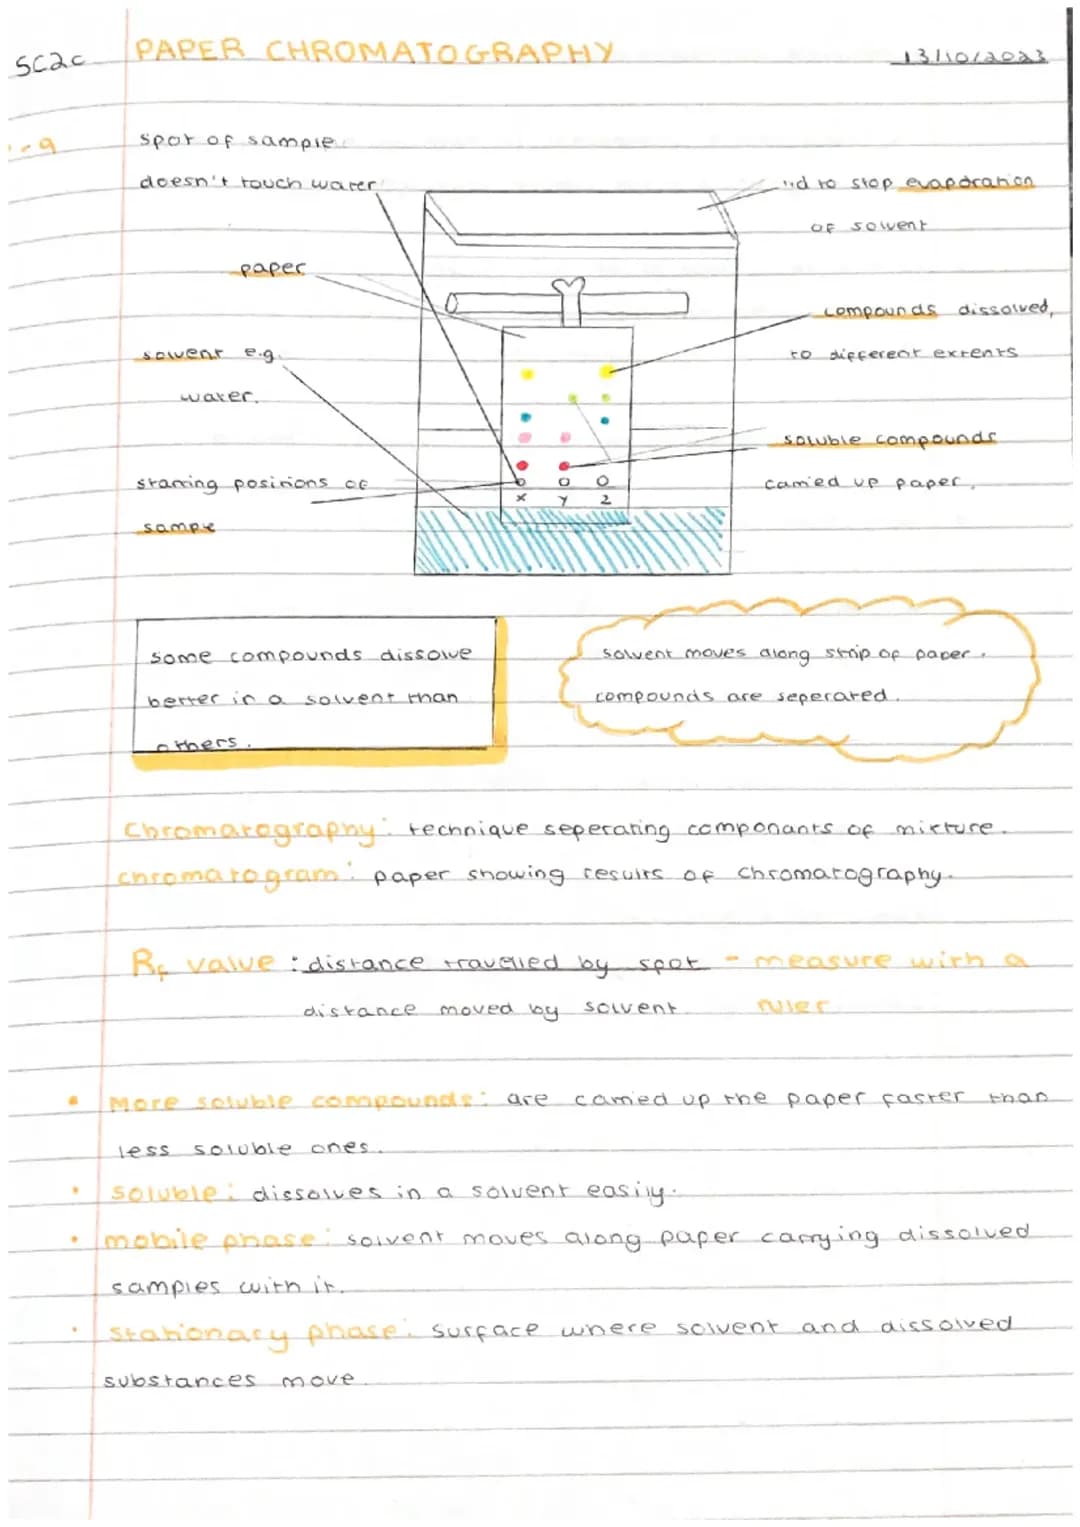 SC2c
PAPER CHROMATOGRAPHY
13/10/2023
spot of sample
doesn't touch water
lid to stop evaporation
of solvent
paper
compounds dissolved,
to different extents
solvent e.g.
water.
soluble compounds
carried up paper.
starting positions of
sample
X Y Z
some compounds dissolve
better in a solvent than
others.
solvent moves along strip of paper.
compounds are seperated.
Chromatography: technique seperating componants of mixture.
chromatogram: paper showing results of chromatography.
Rf value : distance travelled by spot - measure with a
distance moved by solvent ruler
• More soluble compounds: are carried up the paper faster than
less soluble ones.
• soluble: dissolves in a solvent easily.
• mobile phase: solvent moves along paper carrying dissolved
samples with it.
• stationary phase: surface where solvent and dissolved
substances move.